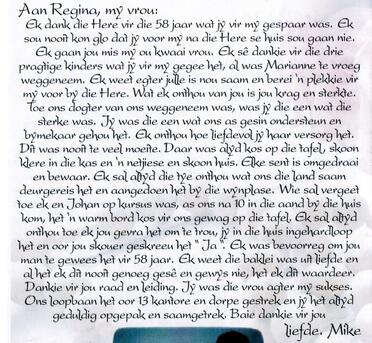 Aan Regina, my vrou:
Ek dank die Here vir die 58 jaar wat jy vir my gespaar was. Ek
sou nooit kon glo dat jy voor my na die Here se huis sou gaan nie.
Ek gaan jou mis my ou kwaai vrou. Ek sê dankie vir die drie
pragtige kinders wat jy vir my gegee het, al was Marianne te vroeg
weggeneem. Ek weet egter julle is nou saam en berei 'n plekkie vir
my voor by die Here. Wat ek onthou van jou is jou krag en sterkte.
Toe ons dogter van ons weggeneem was, was jy die een wat die
sterke was. Jy was die een wat ons as gesin ondersteun en
bymekaar gehou het. Ek onthou hoe liefdevol jy haar versorg het.
Dit was nooit te veel moeite. Daar was altyd kos op die tafel, skoon
klere in die kas en 'n netjiese en skoon huis. Elke sent is omgedraai
en bewaar. Ek sal altyd die tye onthou wat ons die land saam
deurgereis het en aangedoen het by die wynplase. Wie sal vergeet
toe ek en Johan op kursus was, as ons na 10 in die aand by die huis
kom, het 'n warm bord kos vir ons gewag op die tafel. Ek sal altyd
onthou toe ek jou gevra het om te trou, jy in die huis ingehardloop
het en oor jou skouer geskreeu het " Ja ". Ek was bevoorreg om jou
man te gewees het vir 58 jaar. Ek weet die baklei was uit liefde en
al het ek dit nooit genoeg gesê en gewys nie, het ek dit waardeer.
Dankie vir jou raad en leiding. Jy was die vrou agter my sukses.
Ons loopbaan het oor 13 kantore en dorpe gestrek en jy het altyd
geduldig opgepak en saamgetrek. Baie dankie vir jou
liefde. Mike